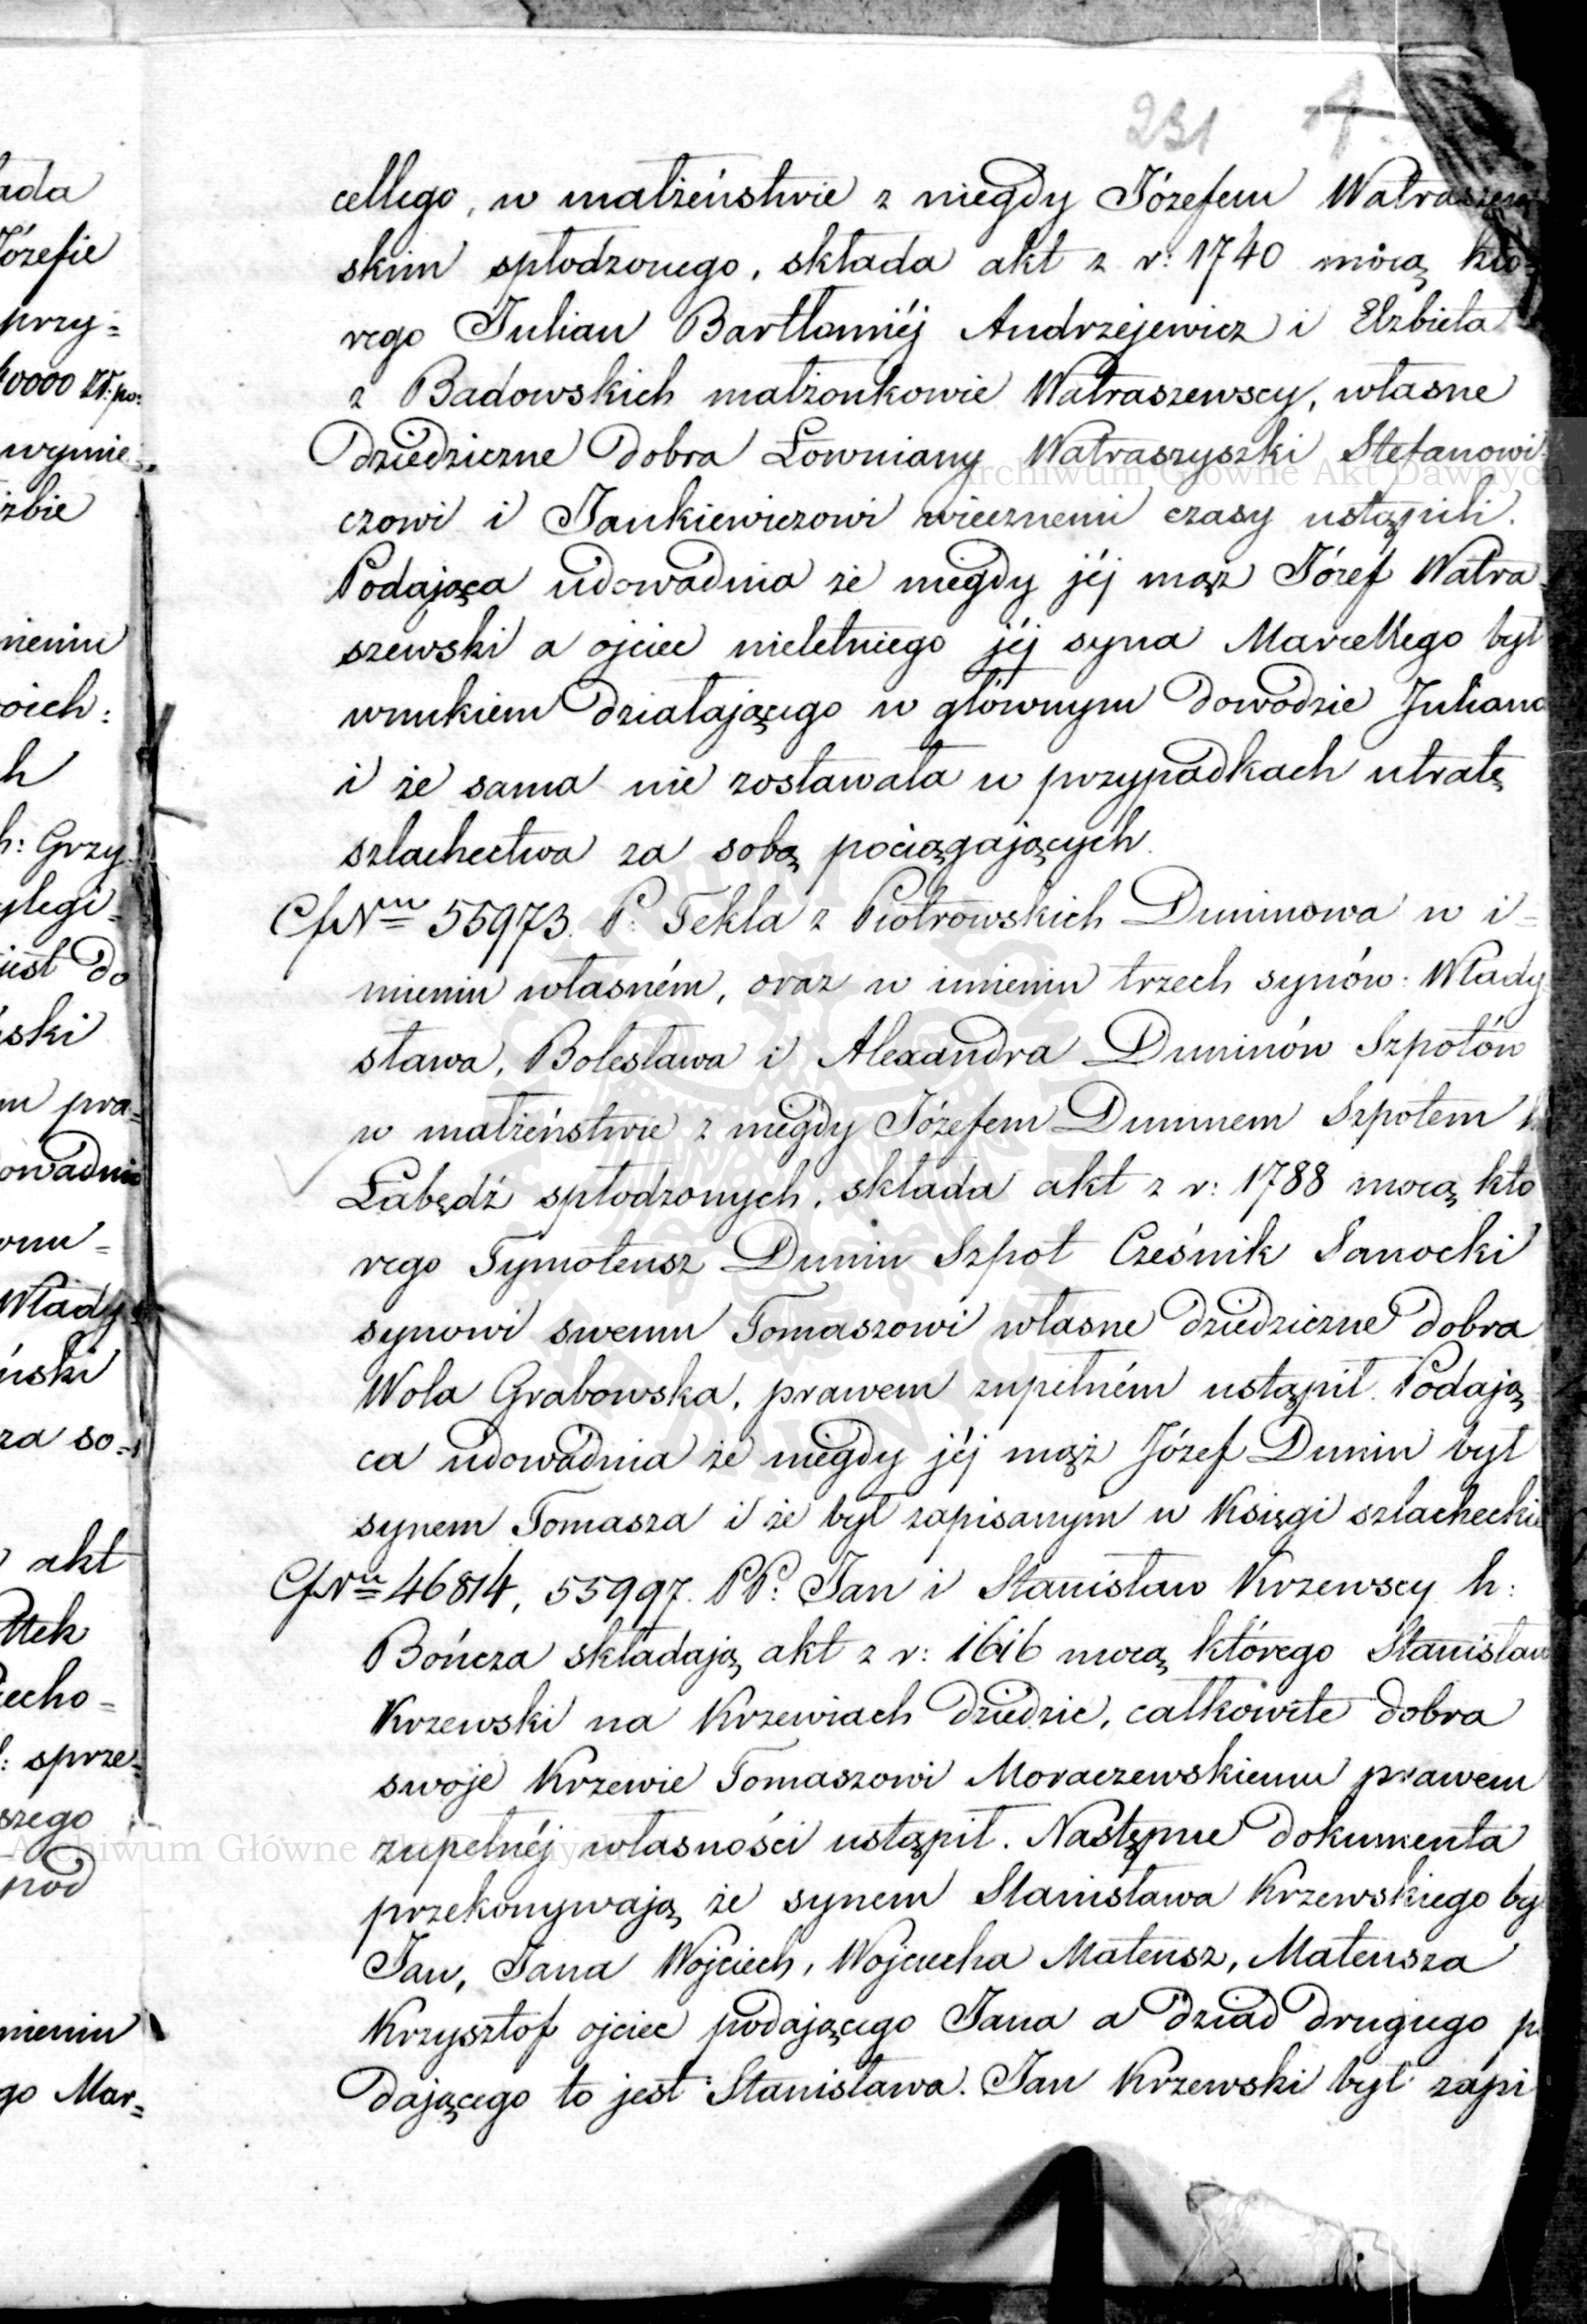 231
cellego, w małżeństwie z niegdy Józefem Watraszew
skim spłodzonego, składa akt z r: 1740 mocą któ
rego Julian Bartłomiéj Andrzejewicz i Elżbieta
z Badowskich małżonkowie Watraszewscy, własne
dziedziczne dobra Łowniany Watraszyszki Stefanowi
czowi i Jankiewiczowi wiecznemi czasy ustąpili.
Podająca udowadnia że niegdy jéj mąż Józef Watra
szewski a ojciec nieletniego jéj syna Marcellego był
wnukiem działającego w głównym dowodzie Juliana
i że sama nie zostawała w przypadkach utratę
szlachectwa za sobą pociągających.
Nru 55973. P. Tekla z Piotrowskich Duninowa w i=
mieniu własném, oraz w imieniu trzech synów: Włady
sława, Bolesława i Alexandra Duninów Szpotów
w małżeństwie z niegdy Józefem Duninem Szpotem h
Łabędź spłodzonych, składa akt z r: 1788 mocą któ
rego Tymoteusz Dunin Szpot Cześnik Sanocki
synowi swemu Tomaszowi własne dziedziczne dobra
Wola Grabowska, prawem zupełném ustąpił. Podają
ca udowadnia że niegdy jéj mąż Józef Dunin był
synem Tomasza i że był zapisanym w Księgi szlacheckie
Nru 46814, 55997. PP: Jan i Stanisław Krzewscy h:
Bończa składają akt z r: 1616 mocą którego Stanisław
Krzewski na Krzewiach dziedzic, całkowite dobra
swoje Krzewie Tomaszowi Moraczewskiemu prawem
zupełnéj własności ustąpił. Następne dokumenta
przekonywają że synem Stanisława Krzewskiego by
Jan, Jana Wojciech, Wojciecha Mateusz, Mateusza
Krzysztof ojciec podającego Jana a dziad drugiego p
dającego to jest Stanisława. Jan Krzewski był zapi